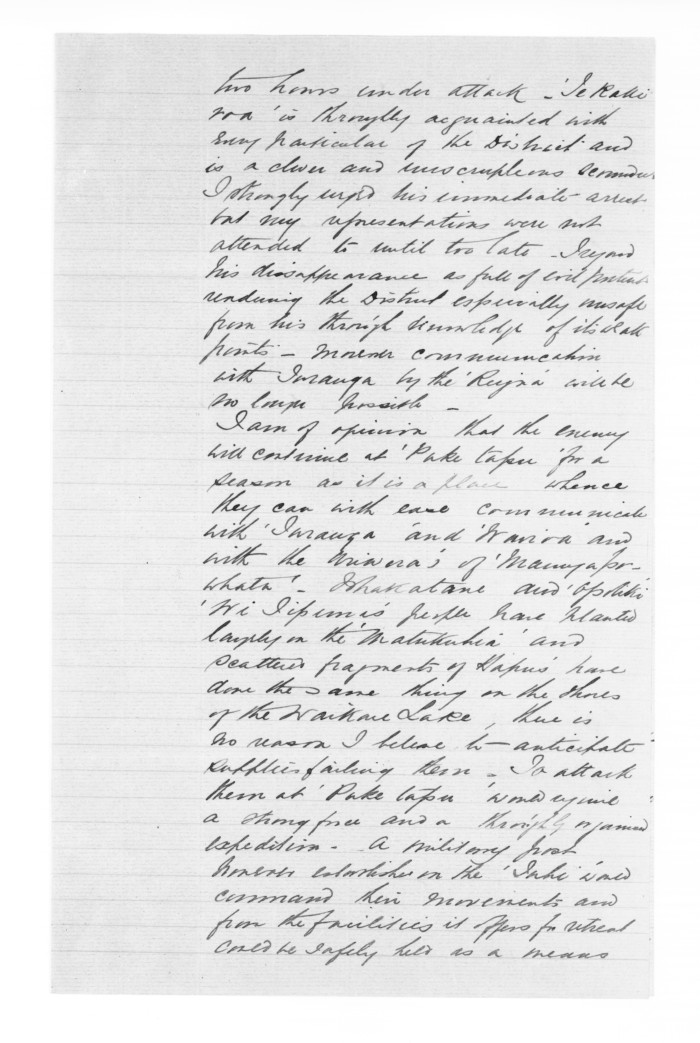 two hours under attack - 'Te Rakii
roa' is throughly acquainted with
every particular of the District and
is a clever and unscrupulous scoundrel
I strongly urged his immediate arrest
but my representations were not
attended to until too late - I regard
his dissappearance as full of evil portent
rendering the District especially unsafe
from his through knowledge of its weak
points - moreover communication
with Turanga by the 'Reinga' will be
no longer possible -
I am of opinion that the enemy
will continue at 'Puke tapu' for a
season as it is a place whence
they can with ease communicate
with 'Turanga' and 'Wairoa' and
with the Uriwera's of 'Maungapo-
whatu' - Whakatane and 'Opotiki
'Wi Tipuna's people have planted
largely on the 'Matukuhia' and
scattered fragments of Hapus have
done the same thing on the shores
of the Waikare Lake, there is
no reason I believe to anticipate
supplies failing them - To attack
them at 'Puke tapu' would require
a strong force and a throughly organised
expedition - A military post
however established on the 'Tuhi' would
command their movements and
from the facilities it offers for retreat
could be safely held as a means